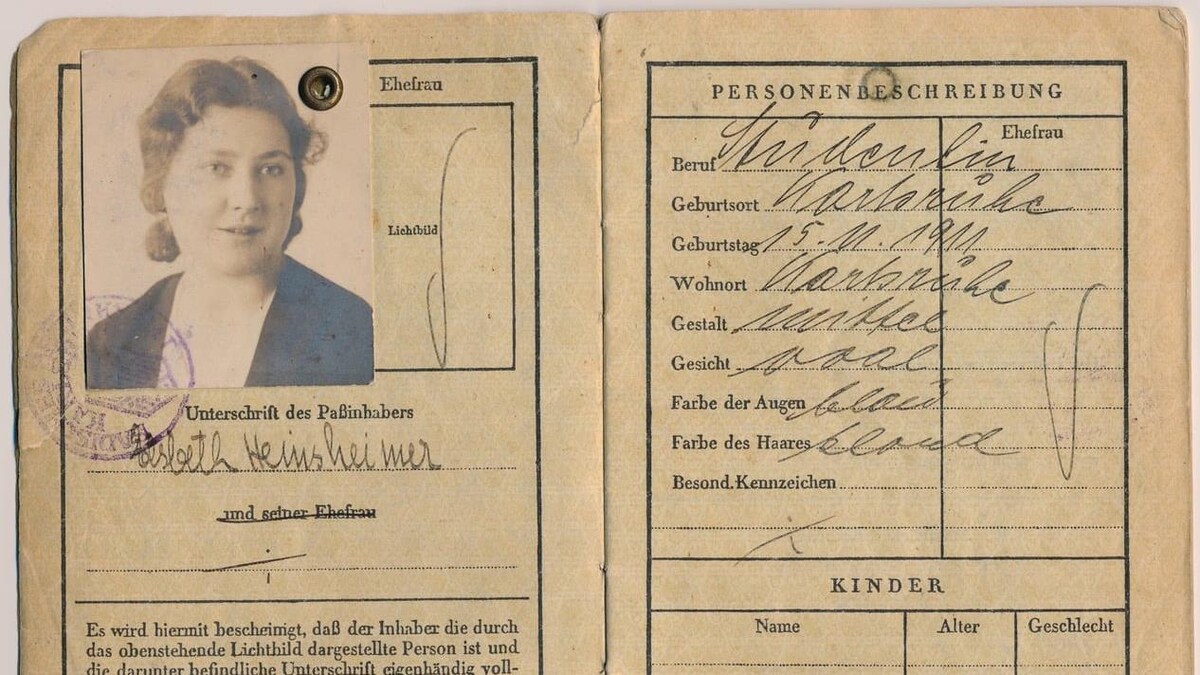 Ehefrau
Lichtbild
Unterschrift des Paßinhabers
Heinsheimer
und seiner Ehefrau
Es wird hiermit bescheinigt, daß der Inhaber die durch
das obenstehende Lichtbild dargestellte Person ist und
die darunter befindliche Unterschrift eigenhändig voll-
PERSONENBESCHREIBUNG
Ehefrau
Beruf Studentin
Geburtsort Karlsruhe
Geburtstag 15. 11. 1911
Wohnort Karlsruhe
Gestalt mittel
Gesicht oval
Farbe der Augen blau
Farbe des Haares blond
Besond. Kennzeichen
KINDER
Name Alter Geschlecht